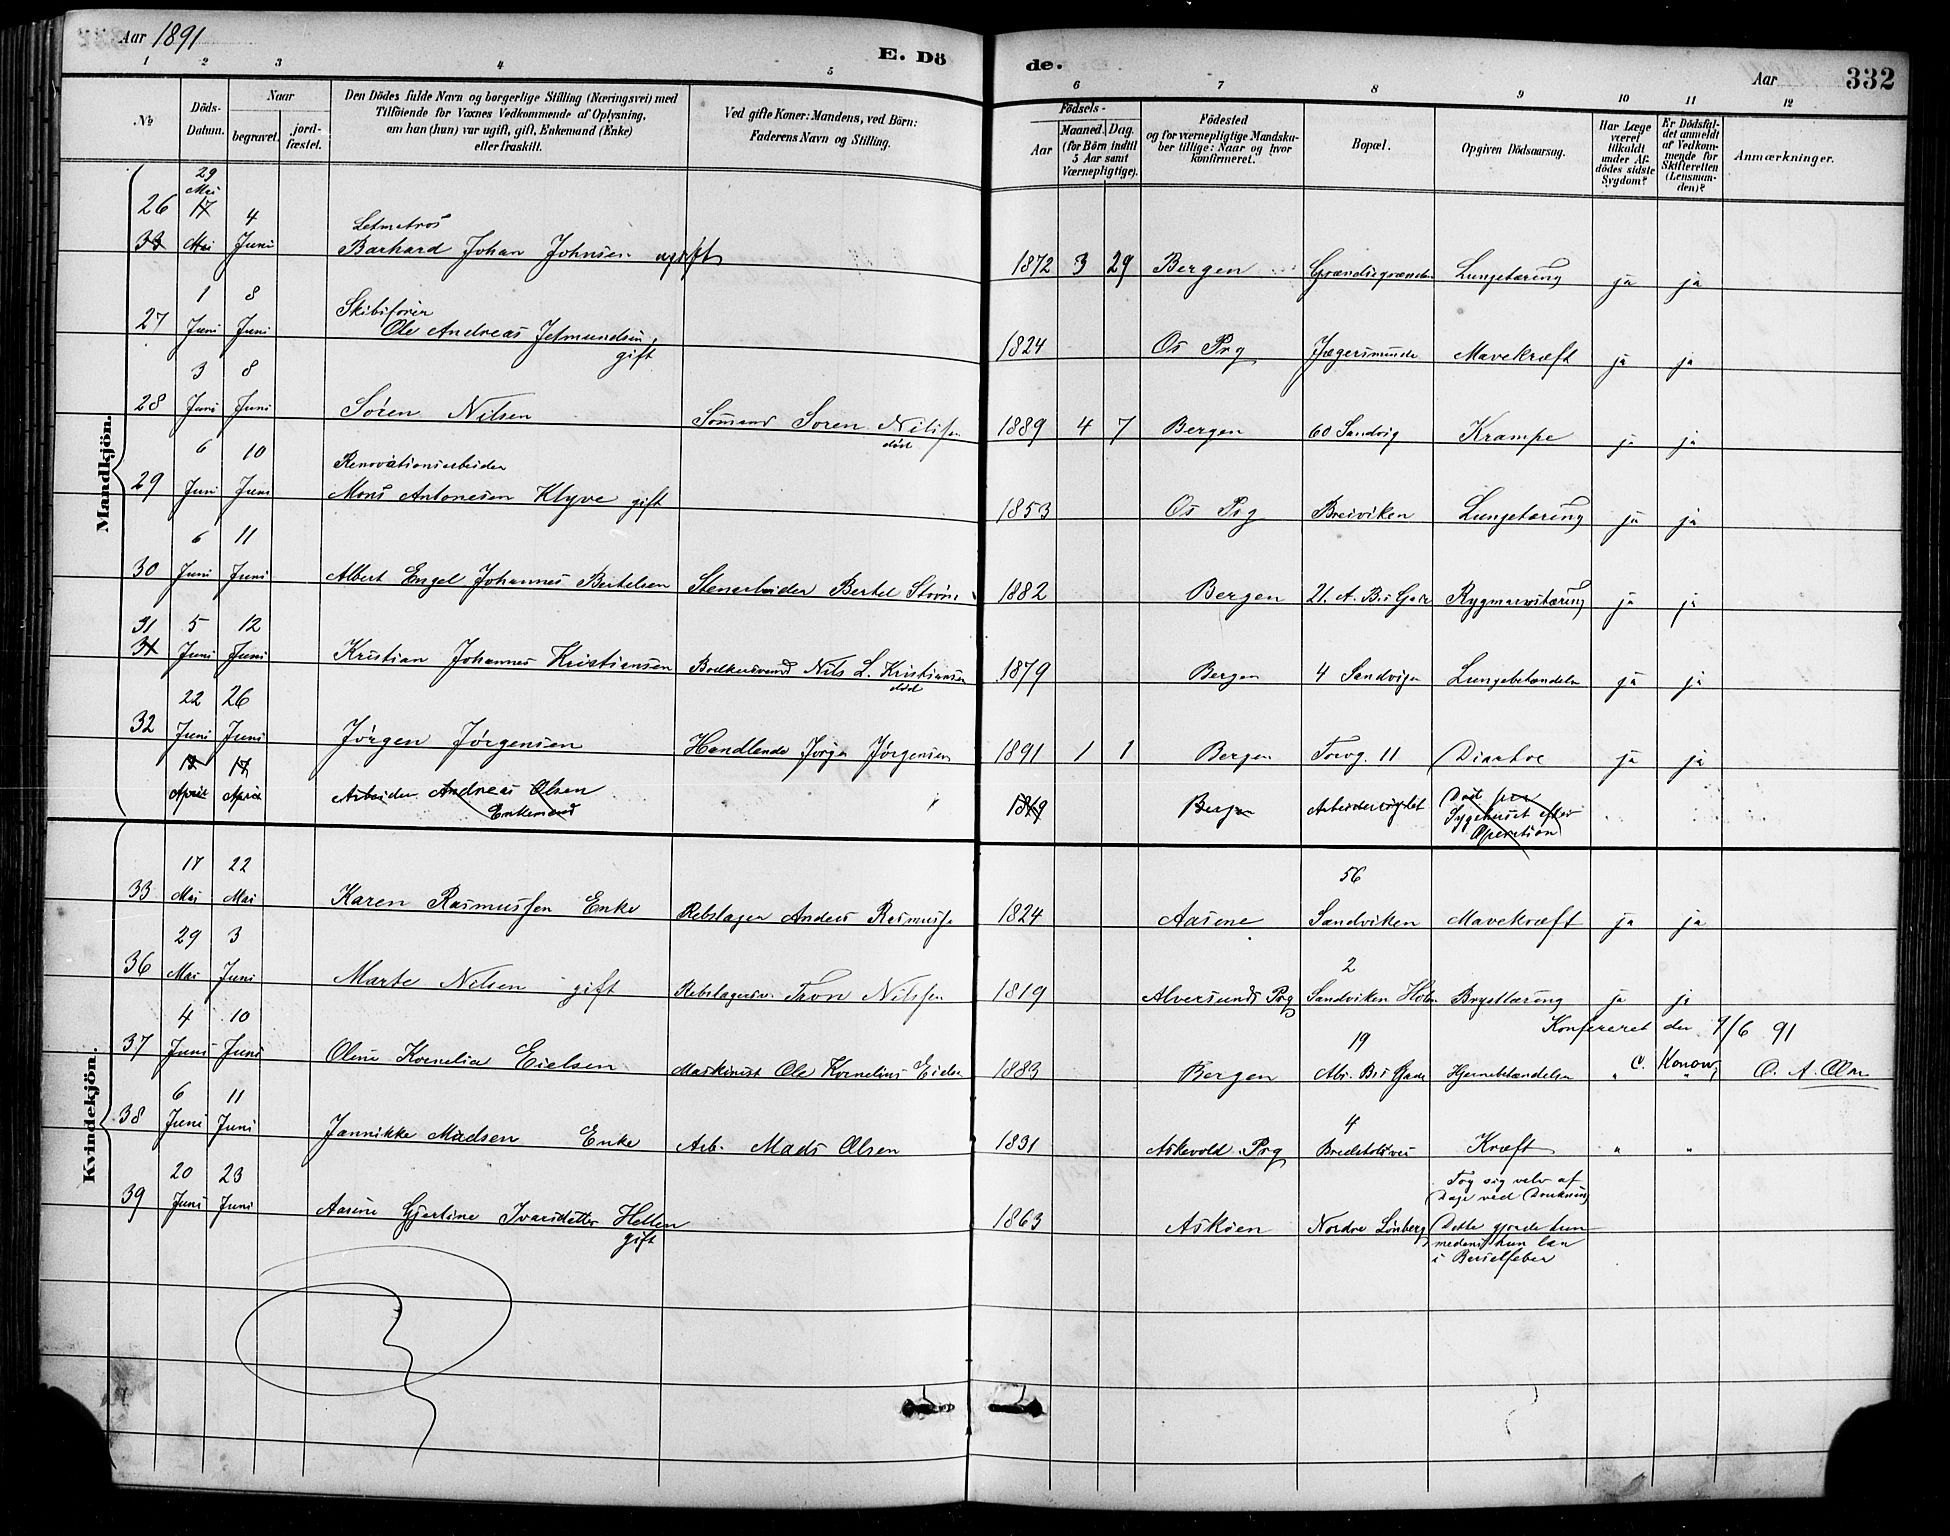 Aar 1891
E. Dö
de.
Aar
332
1 2 3 4 5 6 7 8 9 10 11 12
No
Döds-Datum.
Naar
begravet.
jord-fæstet.
Den Dödes fulde Navn og borgerlige Stilling (Næringsvei) med
Tilföiende for Voxnes Vedkommende af Oplysning,
om han (hun) var ugift, gift, Enkemand (Enke)
eller fraskilt.
Ved gifte Koner: Mandens, ved Börn:
Faderens Navn og Stilling.
Födsels-
Aar
Maaned.
Dag.
(for Börn indtil
5 Aar samt
Værnepligtige).
Födested
og for værnepligtige Mandska-
ber tillige: Naar og hvor
konfirmeret.
Bopæl.
Opgiven Dödsaarsag.
Har Læge
været
tilkaldt
under Af-
dödes sidste
Sygdom?
Er Dödsfal-
det anmeldt
af Vedkom-
mende for
Skifteretten
(Lensman-
den)?
Anmærkninger.
Mandkjön.
29
Mai
26 17 4 Letmatros
33 Mai Juni Barhard Johan Johnsen ugift 1872 3 29 Bergen Lungetæring ja ja
1 8 Skibsfører
27 Juni Juni Ole Andreas Jetmundsen, gift 1824 Os Prg Jægersminde Mavekræft ja ja
3 8
28 Juni Juni Søren Nilsen Sømand Søren Nilssen død 1889 4 7 Bergen 60 Sandvig Krampe ja ja
6 10 Renovationsarbeider
29 Juni Juni Mons Antonesen Klyve gift 1853 Os Prg Breiviken Lungetæring ja ja
6 11
30 Juni Juni Albert Engel Johannes Bertelsen Stenarbeider Bertel 1882 Bergen 21. A. Bs Gade Rygmarvstæring ja ja
31 5 12
34 Juni Juni Kristian Johannes Kristiansen Bødkersvend Nils L. Kristiansen død 1879 Bergen 4 Sandvigen Lungebetændelse ja ja
22 26
32 Juni Juni Jørgen Jørgensen Handlende Jørgen Jørgensen 1891 1 1 Bergen Torvg. 11 Diarhoe ja ja
17 17
April April Arbeider Andreas Olsen Enkemand " 1819 Bergen Død paa
Sygehuset efter
Operation
Kvindekjön.
17 22 56
33 Mai Mai Karen Rasmussen Enke Rebslager Anders Rasmussen 1824 Aasene Sandviken Mavekræft ja ja
29 3 2
36 Mai Juni Marte Nilsen gift Rebslagersv. Nilssen 1819 Alversunds Prg Sandviken Brysttæring ja ja
4 10 19 Konfereret den 9/6 91
37 Juni Juni Oline Kornelia Eielsen Maskinist Ole Kornelius Eielsen 1883 Bergen Abs. Bs Gade Hjernebetændelse " C. Konow, " O. A. Olsen
6 11 4
38 Juni Juni Jannikke Madsen Enke Arb. Mads Olsen 1831 Askevold Prg Kræft " "
20 23 Tog sig selv af
Dage ved Drukning
39 Juni Juni Aasine Gjertine Ivarsdatter Hellen gift 1863 Askøen Nordre Lønberg (Dette gjorde hun
medens hun laa
i Barselfeber